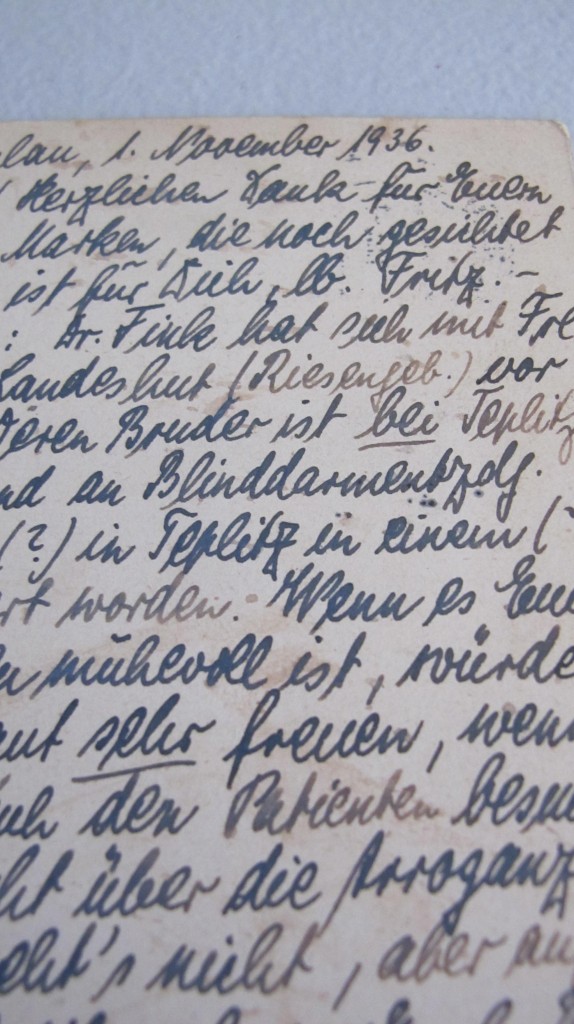 lau, 1. November 1936.
Herzlichen Dank für Euern
Marken, die noch gesichtet
ist für Dich, lb. Fritz. -
: Dr. Fink hat sich mit Fr
Landeshut (Riesengeb.) vor
Deren Bruder ist bei Teplitz
nd an Blinddarmentzdg.
(?) in Teplitz in einem (
rt worden. Wenn es Eu
mühevoll ist, würde
aut sehr freuen, wenn
uch den Patienten besu
ht über die Arroganz
eht's nicht, aber au